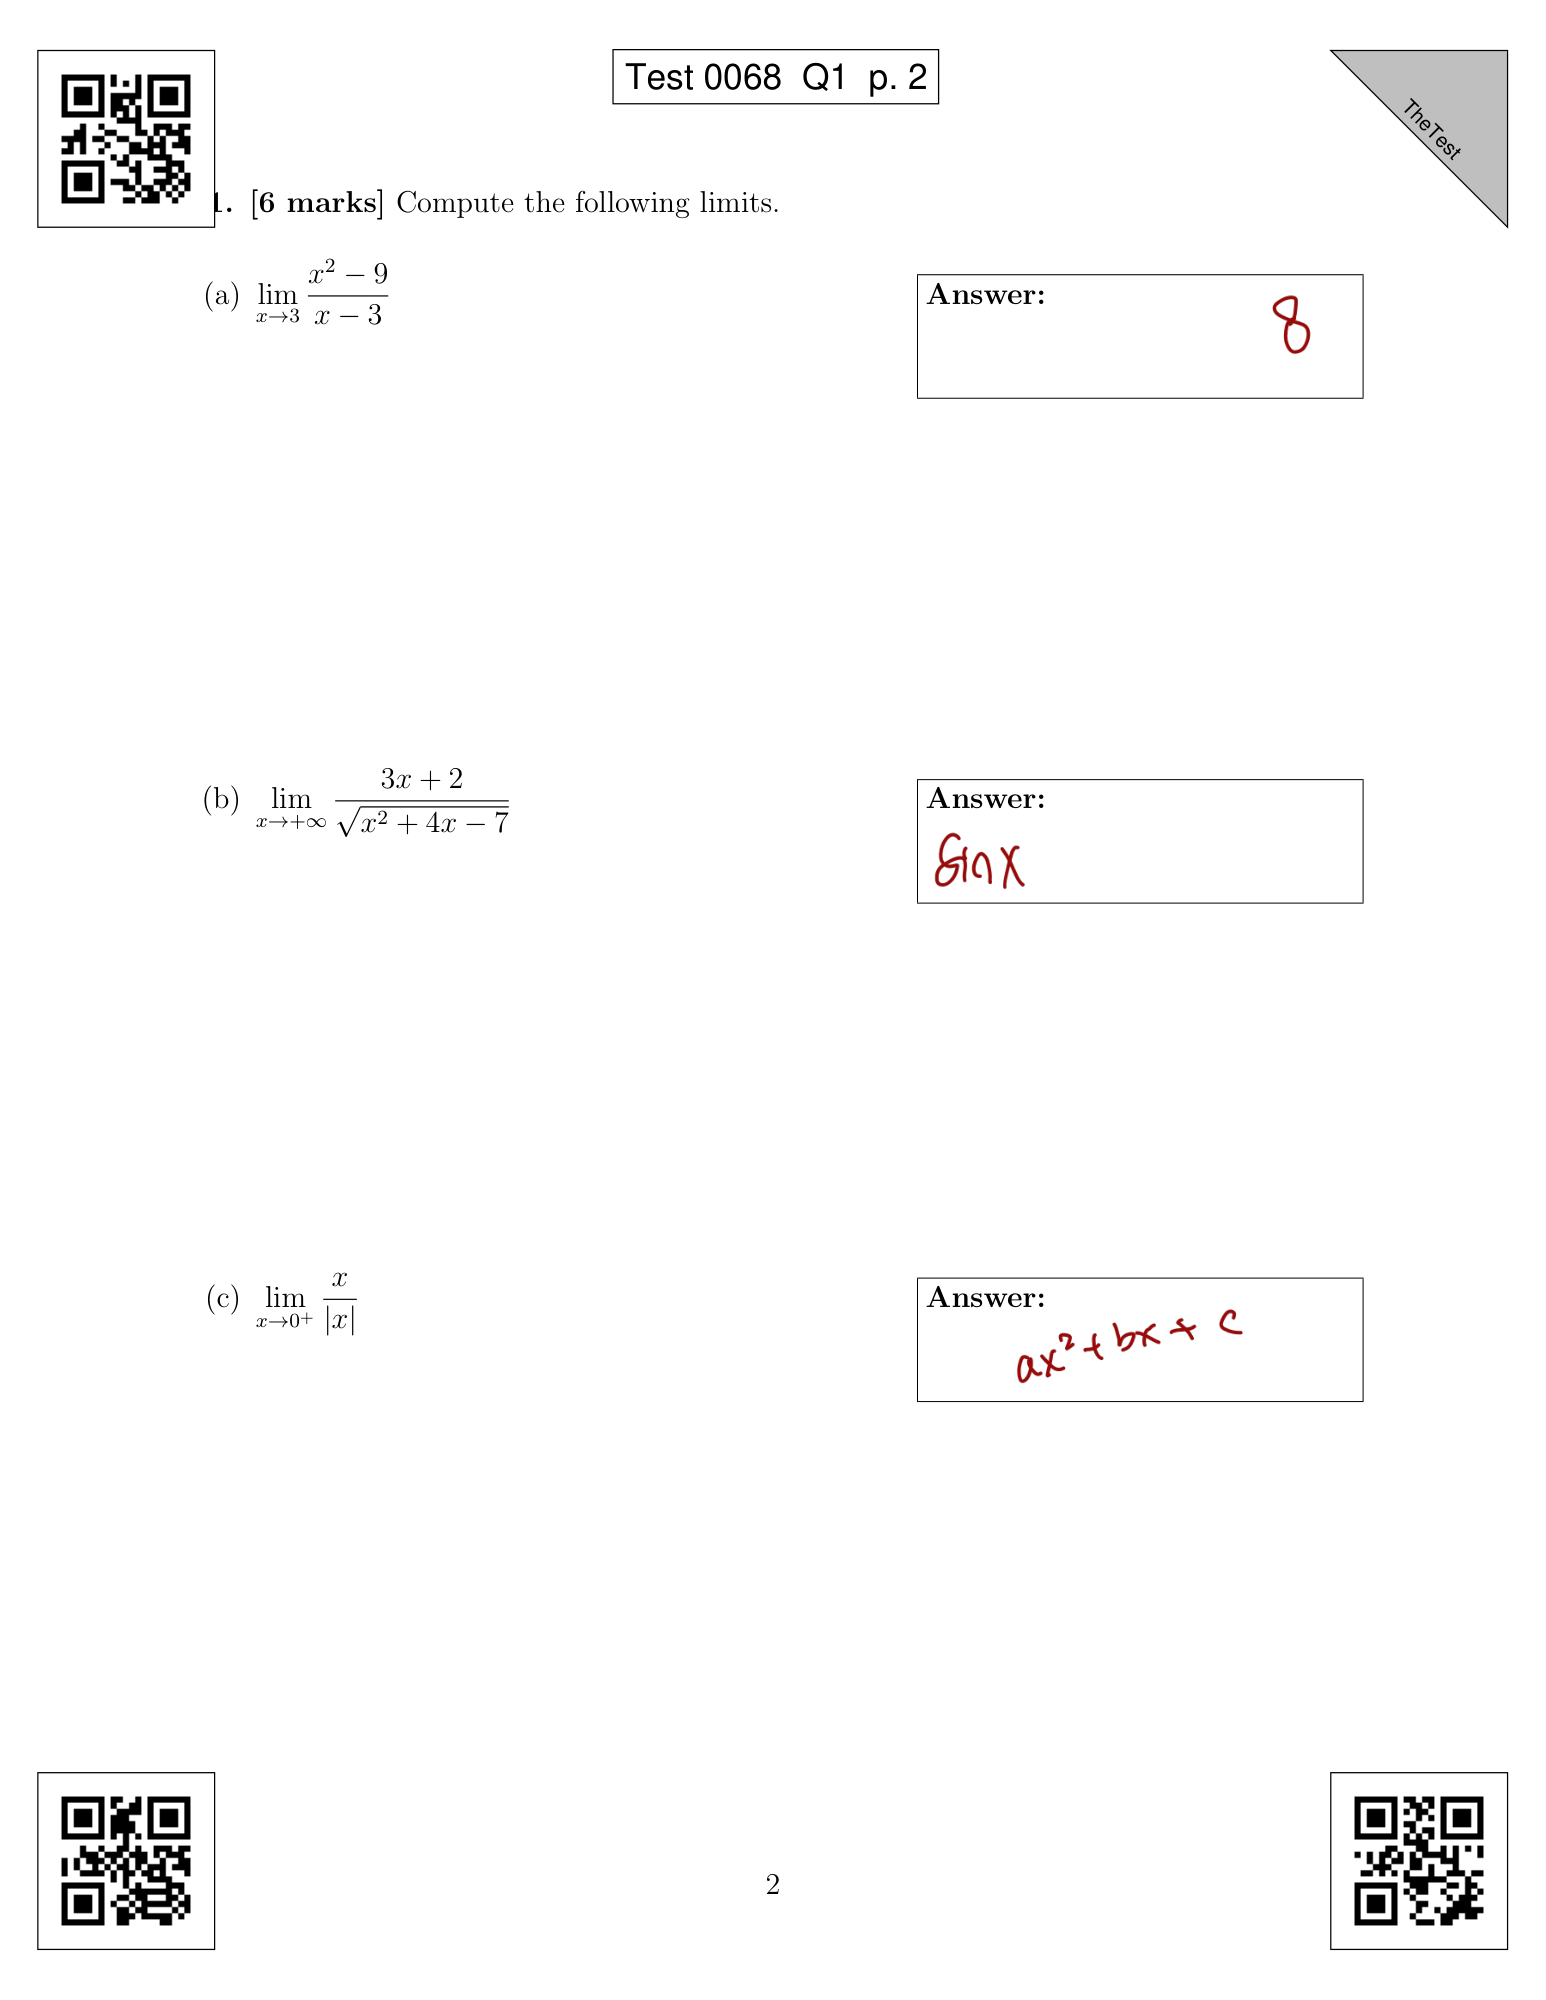 Test 0068 Q1 p. 2
TheTest
1. [6 marks] Compute the following limits.
(a) lim x→3 (x² − 9)/(x − 3)
Answer:
8
(b) lim x→+∞ (3x + 2)/√(x² + 4x − 7)
Answer:
sin x
(c) lim x→0⁺ x/|x|
Answer:
ax² + bx + c
2